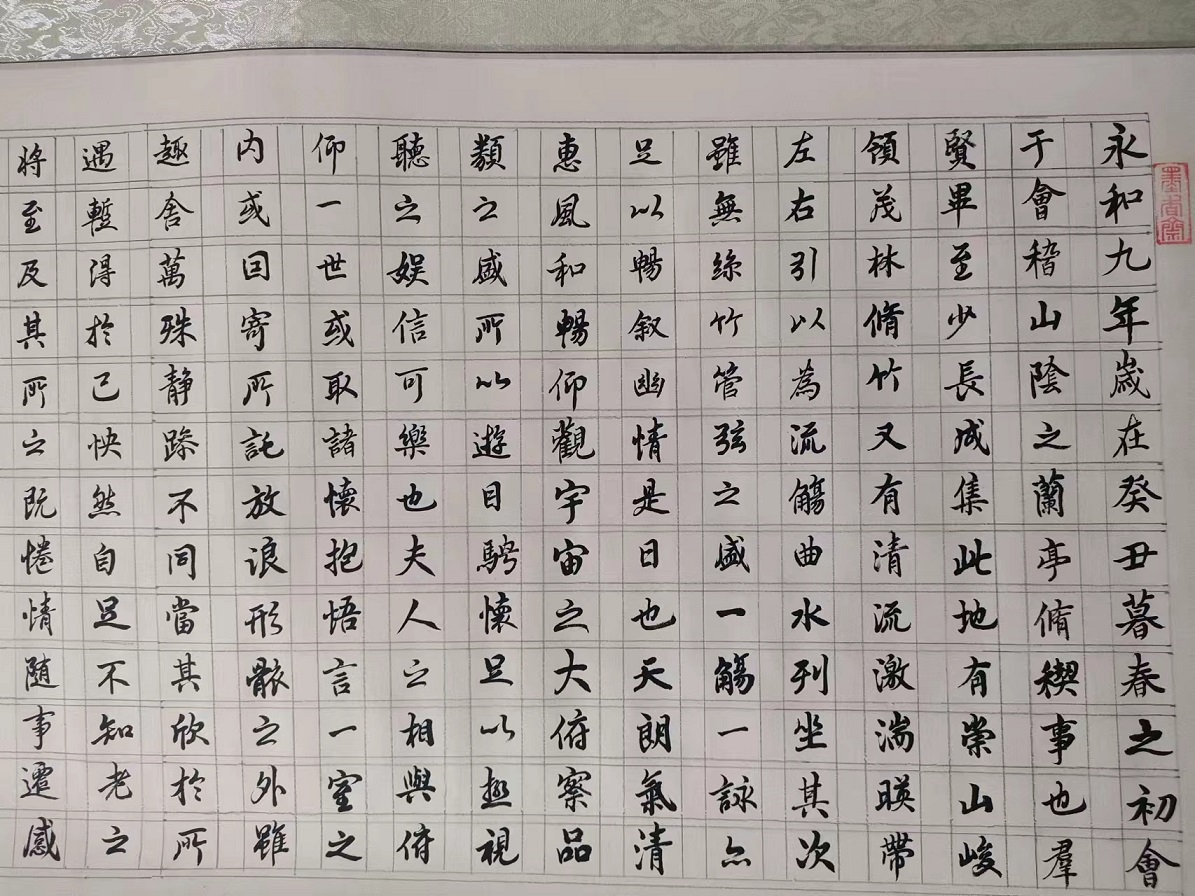 永和九年歲在癸丑暮春之初會
于會稽山陰之蘭亭脩禊事也羣
賢畢至少長咸集此地有崇山峻
領茂林脩竹又有清流激湍暎帶
左右引以為流觴曲水列坐其次
雖無絲竹管弦之盛一觴一詠亦
足以暢叙幽情是日也天朗氣清
惠風和暢仰觀宇宙之大俯察品
類之盛所以遊目騁懷足以極視
聽之娱信可樂也夫人之相與俯
仰一世或取諸懷抱悟言一室之
内或因寄所託放浪形骸之外雖
趣舍萬殊静躁不同當其欣於所
遇暫得於己怏然自足不知老之
將至及其所之既惓情随事遷感